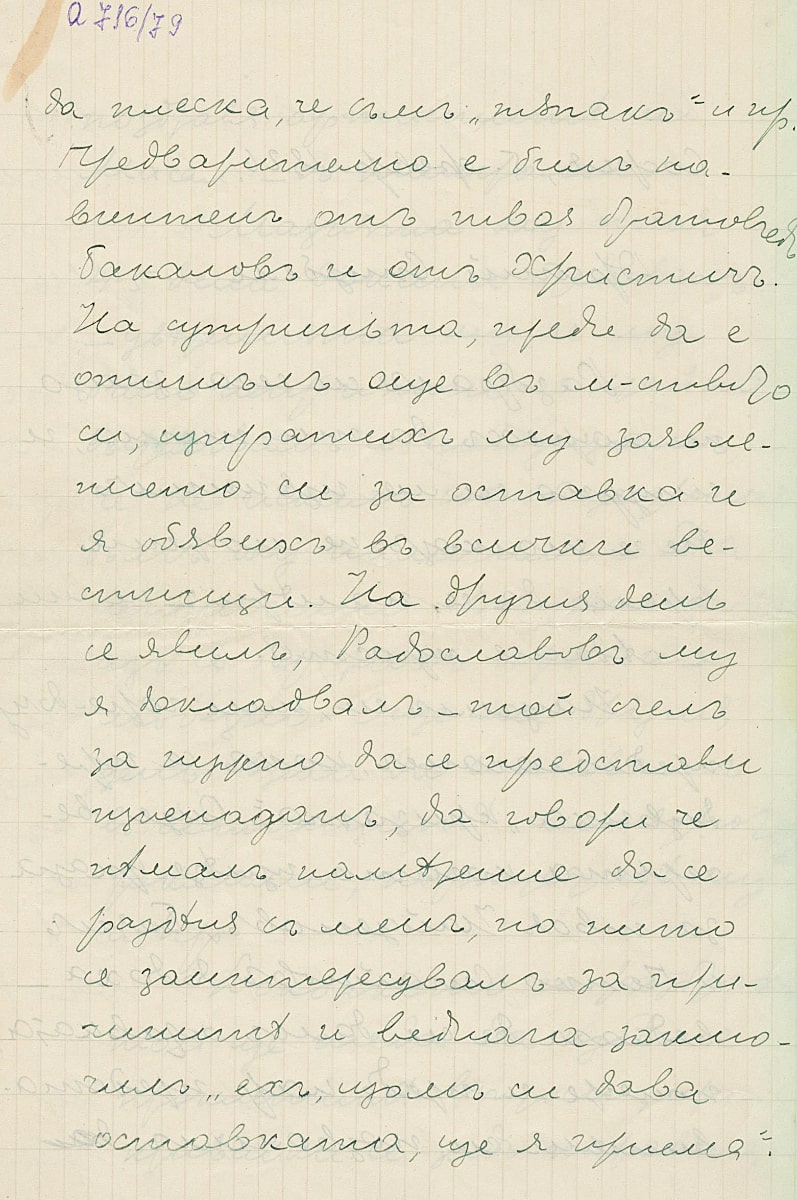 А 796/79
да плеска, че съмъ „тѣпакъ“ и пр.
Предварително е билъ на-
винтенъ отъ твоя братовчедъ
Бакаловъ и отъ Христичъ.
На сутриньта, преди да е
отишълъ още въ м-ството
си, изпратихъ му заявле-
нието си за оставка и
я обявихъ въ всички ве-
стници. На другия день
се явилъ, Радославовъ му
я докладвалъ – той счелъ
за нужно да се представи
изненаданъ, да говори че
нѣмалъ намѣрение да се
раздѣля съ менъ, но нито
се заинтересувалъ за при-
чинитѣ и веднага заклю-
чилъ „ехъ, щомъ си дава
оставката, ще я приема“.